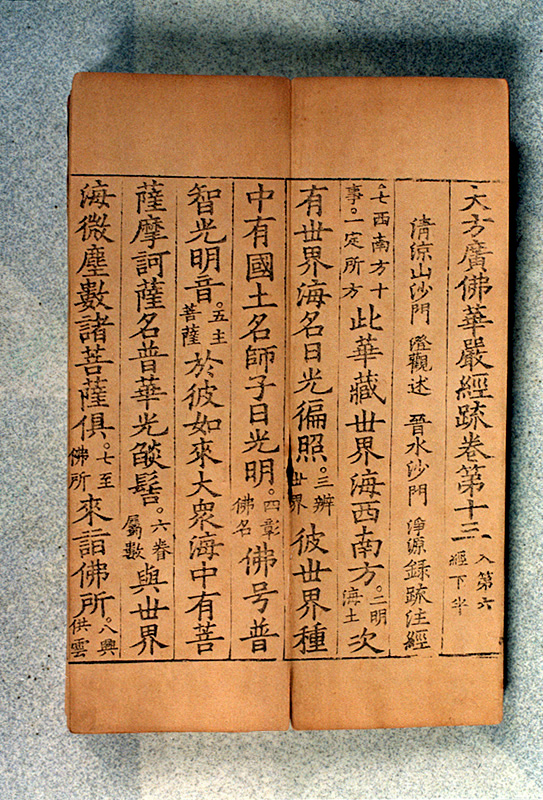 大方廣佛華嚴經疏卷第十三 入第六經下半
清涼山沙門 澄觀述 晉水沙門 淨源錄疏注經
七西南方十事。一定所方 此華藏世界海西南方。二明海土 次
有世界海名日光徧照。三辨世界 彼世界種
中有國土名師子日光明。四彰佛名 佛号普
智光明音。五主菩薩 於彼如來大衆海中有菩
薩摩訶薩名普華光𦦨髻。六眷屬數 與世界
海微塵數諸菩薩俱。七至佛所 來詣佛所。八興供雲